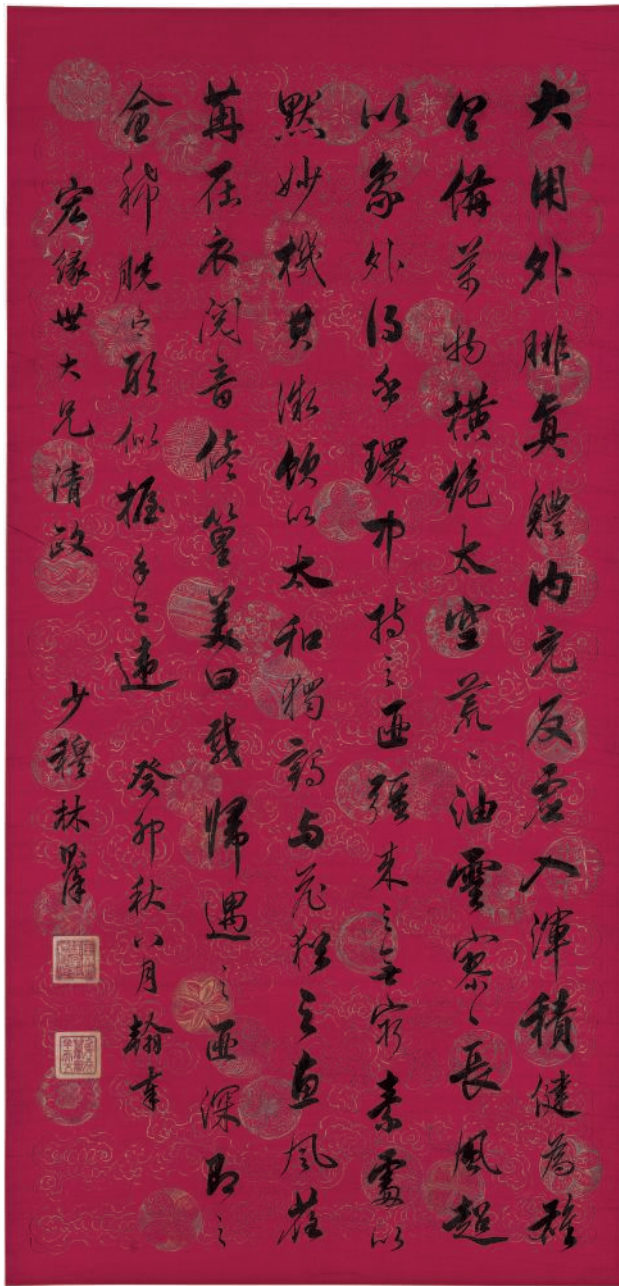 大用外腓真體內充反虛入渾積健為雄
具備萬物橫絕太空荒〻油雲寥〻長風超
以象外得其環中持之匪強來之無窮素處以
默妙機其微飲以太和獨鶴與飛猶之惠風荏
苒在衣閱音修篁美曰載歸遇之匪深即之
愈稀脫有形似握手已違 癸卯秋八月
宏緣世大兄清政 少穆林則徐